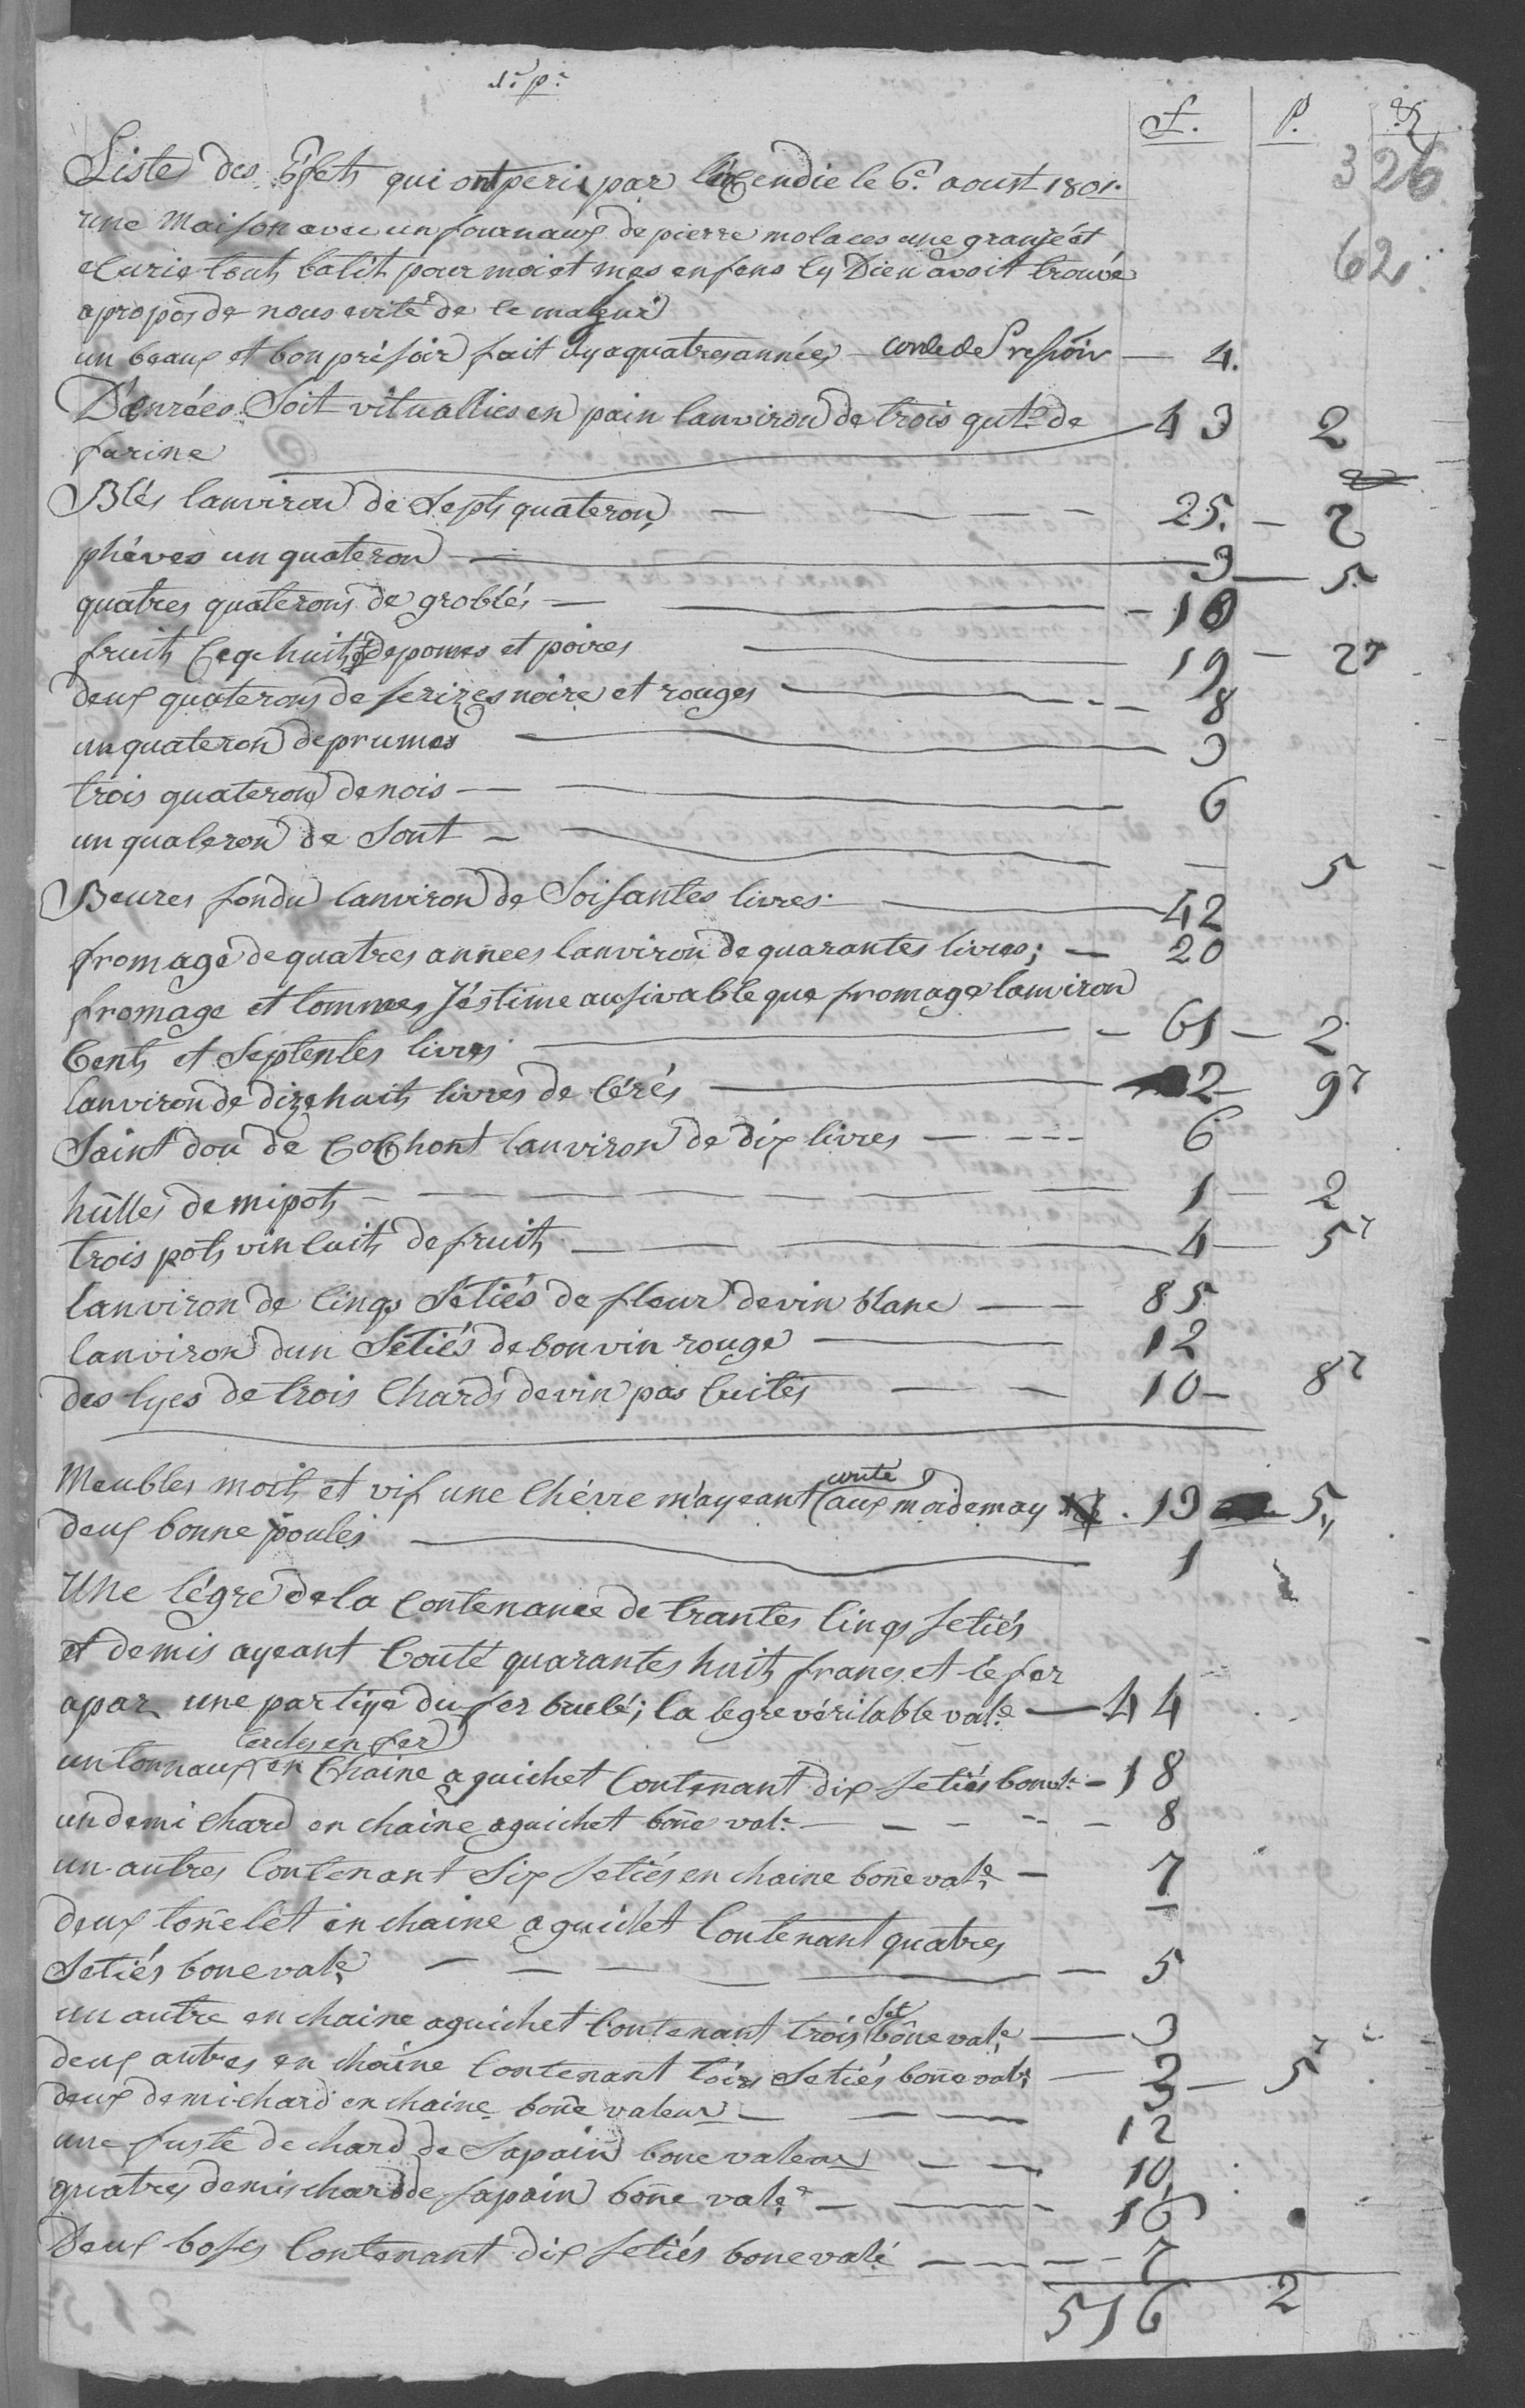 1.re p.e
f. P. R
326
Liste des Éfets qui ont peri par l'incendie le 6.e aoust 1801.
une Maison avec un fournaux de pierre molaces une granje et
62
ecurie tout batit pour moi et mes enfans sy Dieu avoit trouvé
apropos de nous evité de ce malheur
un beaux et bon présoir fait ilyaquatres années — corde de Pressoir — 4.
Dénrées Soit vituallies en pain lanviron de trois qut.s de — 43 2
farine
Blés lanviron de septs quateron — 25. — 2
phèves un quateron — 3 — 5
quatres quaterons de groblés — 10
fruits huits de pomes et poires — 19 — 2 7
deux quaterons de serizes noire et rouges — 8
un quateron de prumes — 3
trois quaterons de nois — 6
un quateron de sont — 5
Beures fondu lanviron de Soisantes livres — 42
fromage de quatres années lanviron de quarantes livres; — 20
fromage et tommes j'éstime ausi vable que fromage lanviron
Cents et septentes livres — 61 — 2
lanviron de dizehuits livres de cérés — 2 — 9 7
Saint dou de Cochont lanviron de dix livres — 6
hûlles demi pots — 1 — 2
trois pots vin cuits de fruits — 4 — 5 7
lanviron de cinqs Setiés de fleur de vin blanc — 85
lanviron dun Setiés de bon vin rouge — 12
des lyes de trois Chards de vin pas cuites — 10 — 8 7
Meubles moits et vif une Chévre m'ayeant couté aux moi de may . 13 5 „
deux bonne poules — 1
Une légre de la Contenance de trantes cinqs setiés
et demis ayeant Couté quarantes huits francs et le fer
apar une partiye du fer brulé; la legre véritable val.e — 44
un tonnaux cercles en fer en Chaine a guichet Contenant dix setiés bone val.e — 18
un demi Chard en chaine a guichet bone val.e — 8
un autres Contenant Six setiés en chaine bone val.e — 7
deux tonelet en chaine a guichet Contenant quatres
Setiés bone val.e — 5
un autre en chaine a guichet Contenant trois set bone val.e — 3
deux autres en chaine Contenant Setiés bone val.e — 3 — 5 7
deux demi chard en chaine bone valeur — 12
une fuste de chard de Sapain bone valeur — 10
quatres demis chard de sapain bone val.e — 16
Deux boses Contenant dix setiés bone valé — 7
516 2